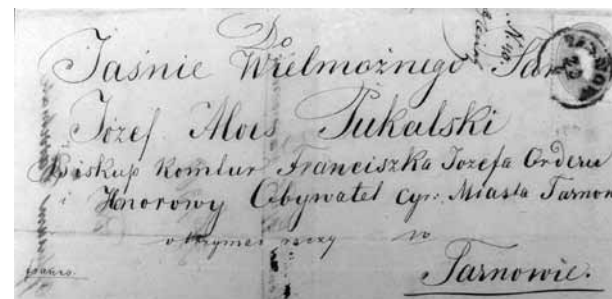 Do
Jaśnie Wielmożnego Pan
Józef Alois Pukalski
Biskup Komtur Franciszka Jozefa Orderu
i Honorowy Obywatel Cyr: Miasta Tarnow
otrzymać raczy w
Tarnowie.
franco.